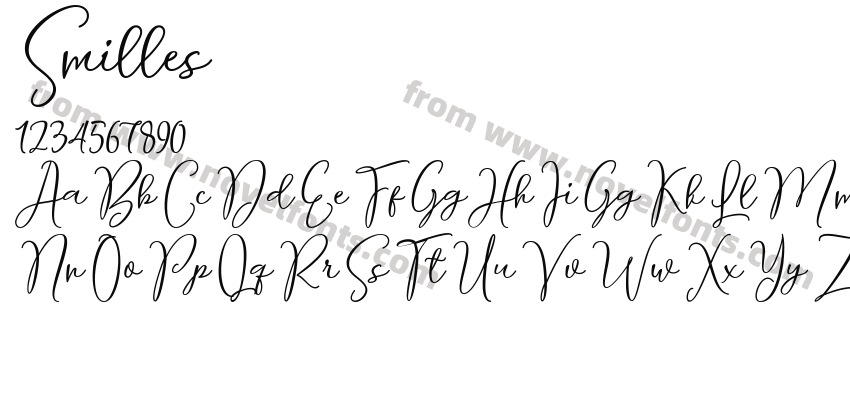 Smilles
1234567890
Aa Bb Cc Dd Ee Ff Gg Hh Ii Gg Kk Ll Mm
Nn Oo Pp Qq Rr Ss Tt Uu Vv Ww Xx Yy Z
from www.novelfonts.com
from www.novelfonts.com